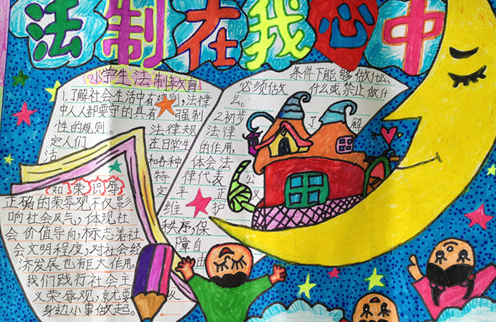 法制在我心中
小学生法制教育
1.了解社会生活中有
规则，法律
中人人都要
守的具有
强制
性的规则
法律规
定人们
在日常
条件下能够做什么
必须做
什么或禁止做什
么。
2.初步
了
解
法律
的作用，
和各种
体会法
特
律代表
定
平
维护
秩序，保
障自
由
知荣辱
正确的荣辱观不仅影
响社会风气，体现社
会价值导向，标志着社
会文明程度，对社会经
济发展也有巨大作用。
我们践行社会主
义荣辱观，就要从
身边小事做起。